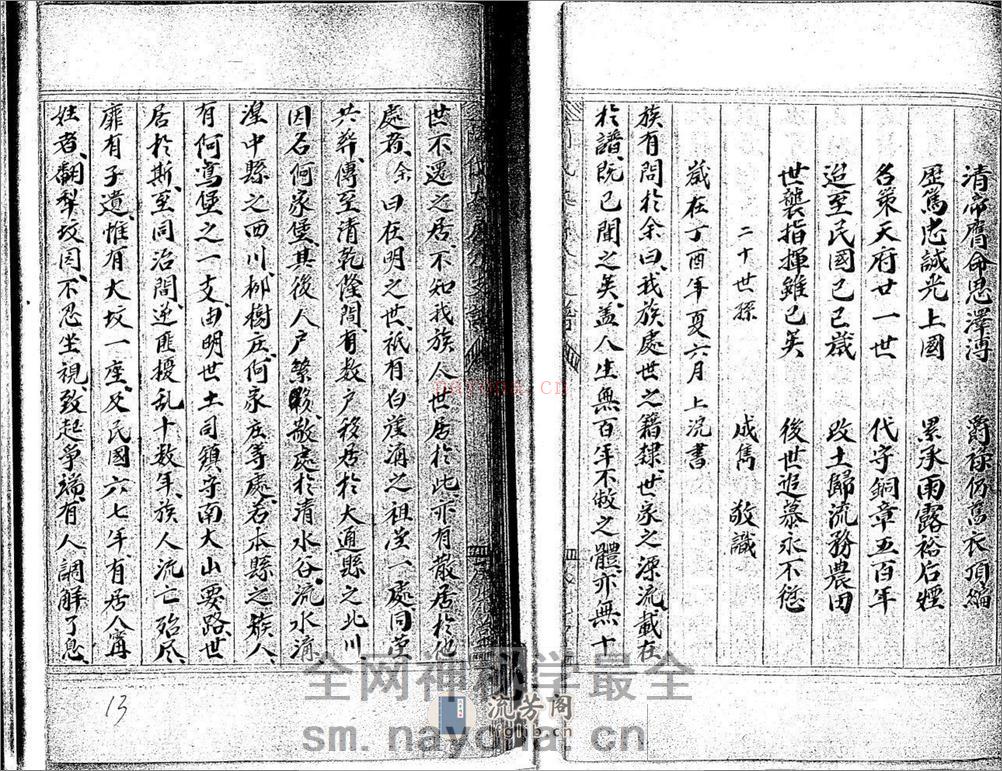 清帝膺命恩澤溥 爵祿仍舊衣頂綸
歷篤忠誠光上國 累承雨露裕后煙
名策天府廿一世 代守銅章五百年
迨至民國己巳歲 改土歸流務農田
世襲指揮雖已矣 後世追慕永不愆
二十世孫 成雋 敬識
歲在丁酉年夏六月上浣書
族有問於余曰我族處世之籍隸世家之源流載在
於譜既已聞之矣蓋人生無百年不敝之體亦無十
世不遷之居不知我族人世居於此亦有散居於他
處者余曰在明之世祇有白崖溝之祖塋一處同塋
共葬傳至清乾隆間有數户移居於大通縣之北川
因名何家堡其後人户繁賾散處於清水谷流水溝
湟中縣之西川柳樹庄何家庄等處若本縣之族人
有何窵堡之一支由明世土司鎮守南大山要路世
居於斯至同治間逆匪擾乱十数年族人流亡殆尽
靡有孑遺惟有大坟一座及民國六七年有居人甯
姓者翻犁坟园不忍坐視致起爭端有人調解了息
13
nayona.cn
全网神秘学最全
流芳阁
hglib.cn
sm.nayona.cn